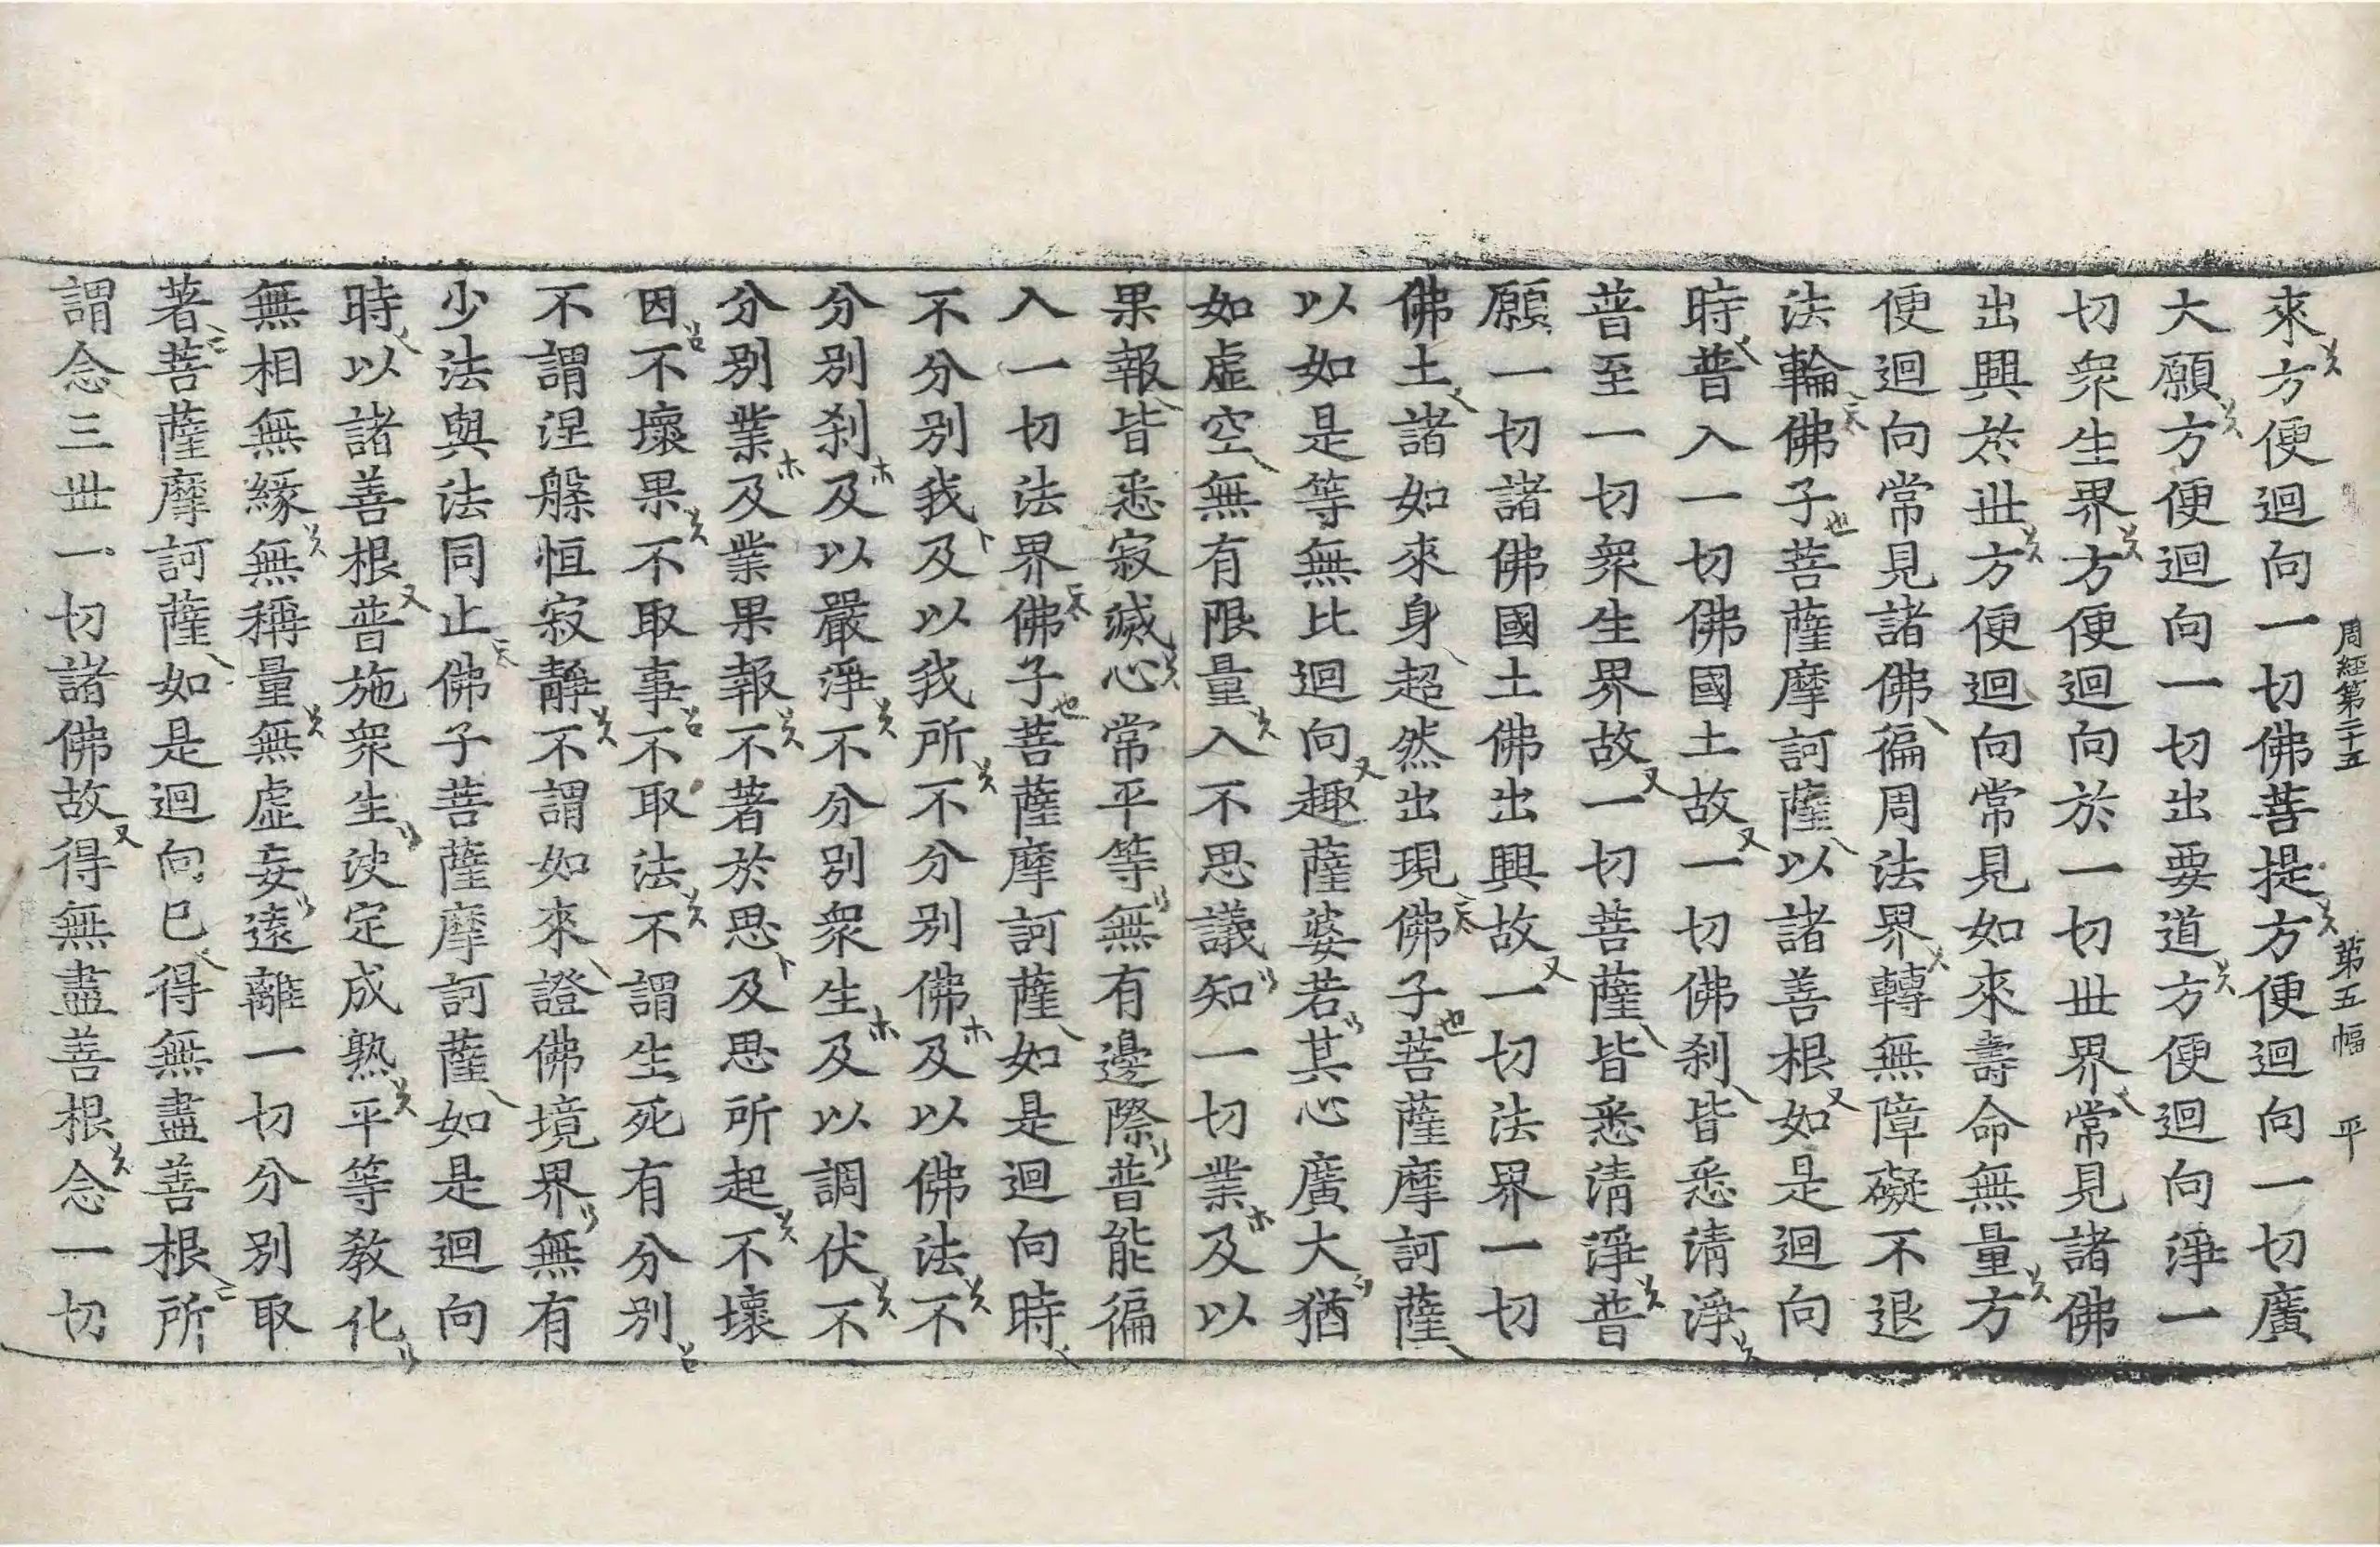 周經第二十五　第五幅　平
來方便迴向一切佛菩提方便迴向一切廣
大願方便迴向一切出要道方便迴向淨一
切衆生界方便迴向於一切世界常見諸佛
出興於世方便迴向常見如來壽命無量方
便迴向常見諸佛徧周法界轉無障礙不退
法輪佛子菩薩摩訶薩以諸善根如是迴向
時普入一切佛國土故一切佛刹皆悉清淨
普至一切衆生界故一切菩薩皆悉清淨普
願一切諸佛國土佛出興故一切法界一切
佛土諸如來身超然出現佛子菩薩摩訶薩
以如是等無比迴向趣薩婆若其心廣大猶
如虛空無有限量入不思議知一切業及以
果報皆悉寂滅心常平等無有邊際普能徧
入一切法界佛子菩薩摩訶薩如是迴向時
不分別我及以我所不分別佛及以佛法不
分別刹及以嚴淨不分別衆生及以調伏不
分別業及業果報不著於思及思所起不壞
因不壞果不取事不取法不謂生死有分別
不謂涅槃恒寂靜不謂如來證佛境界無有
少法與法同止佛子菩薩摩訶薩如是迴向
時以諸善根普施衆生決定成熟平等敎化
無相無緣無稱量無虛妄遠離一切分別取
著菩薩摩訶薩如是迴向已得無盡善根所
謂念三世一切諸佛故得無盡善根念一切